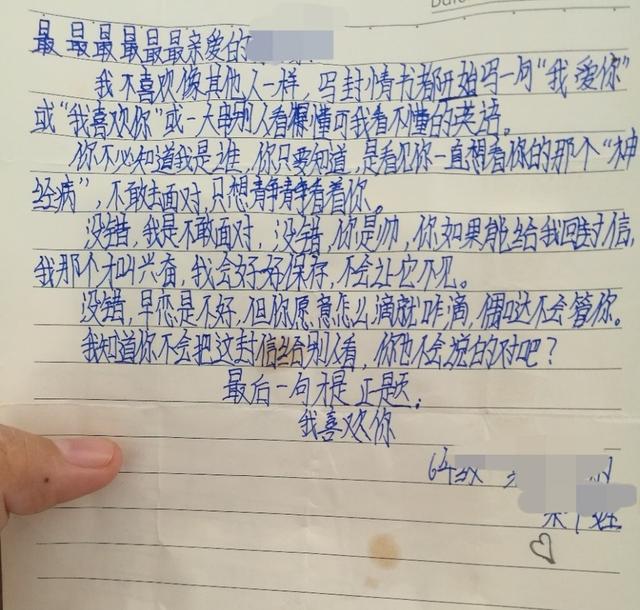 Date
最最最最最最亲爱的
我不喜欢像其他人一样，写封情书都开始写一句“我爱你”
或“我喜欢你”或一大串别人看得懂可我看不懂的英语。
你不必知道我是谁，你只要知道，是看见你一直想看你的那个“神
经病”，不敢去面对只想静静看着你。
没错，我是不敢面对，没错，你是帅，你如果能给我回封信，
我那个才叫兴奋，我会好好保存，不会让它不见。
没错，早恋是不好，但你愿意怎么滴就咋滴，偶哒不会管你。
我知道你不会把这封信给别人看，你也不会说的对吧？
最后一句才是正题：
我喜欢你
6年级
某个姓